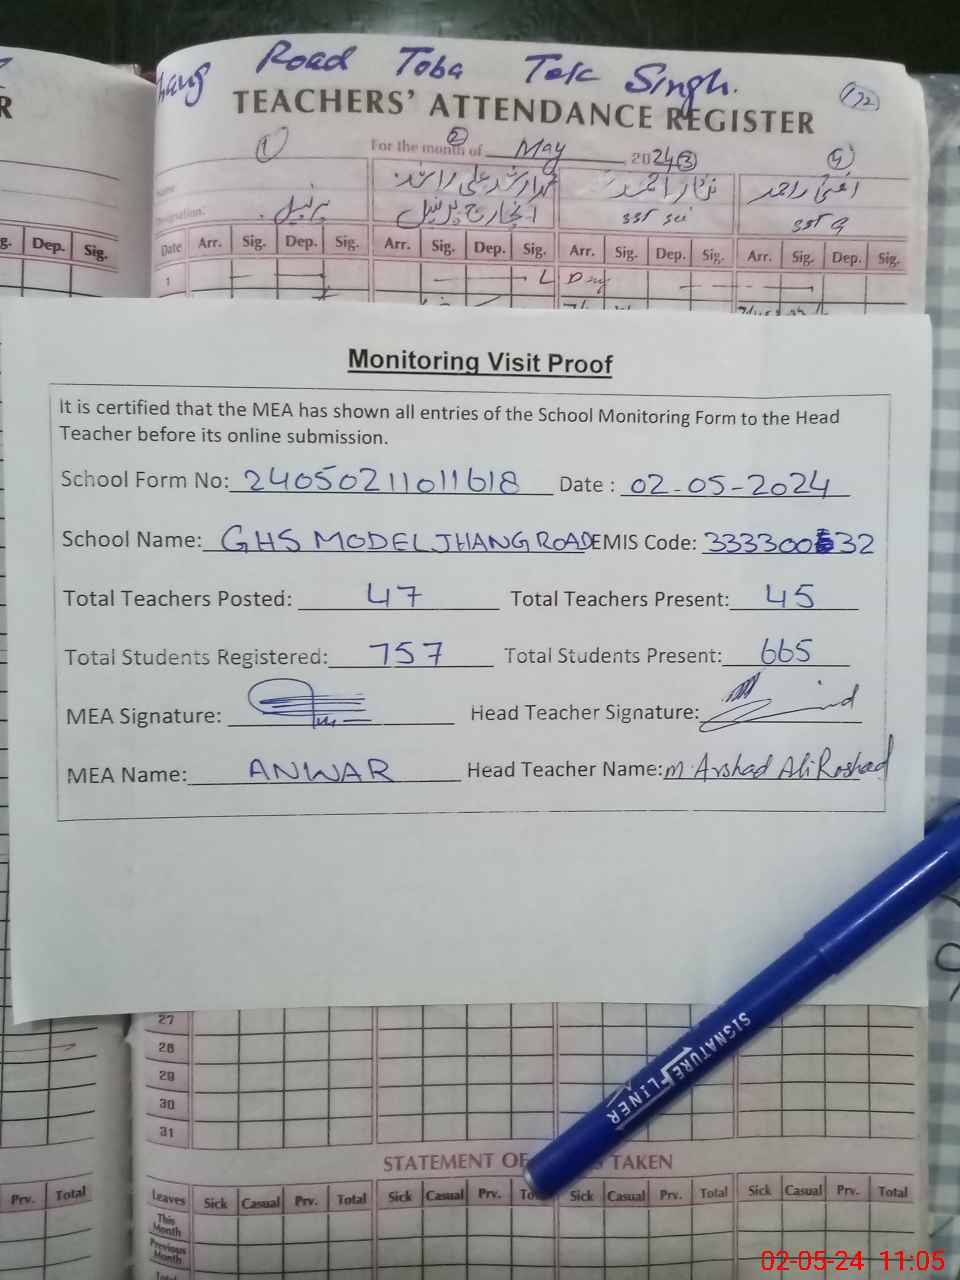 Jhang Road Toba Tek Singh.
TEACHERS' ATTENDANCE REGISTER
For the month of May 2024
① ② ③ ④
Name
Designation. پرنسپل انچارج پرنسپل SST Sci SST G
g. Dep. Sig.
Date Arr. Sig. Dep. Sig. Arr. Sig. Dep. Sig. Arr. Sig. Dep. Sig. Arr. Sig. Dep. Sig.
1
Monitoring Visit Proof
It is certified that the MEA has shown all entries of the School Monitoring Form to the Head
Teacher before its online submission.
School Form No: 24050211011618 Date : 02-05-2024
School Name: GHS MODEL JHANG ROAD EMIS Code: 333300832
Total Teachers Posted: 47 Total Teachers Present: 45
Total Students Registered: 757 Total Students Present: 665
MEA Signature: Head Teacher Signature:
MEA Name: ANWAR Head Teacher Name: M Arshad Ali Rashad
SIGNATURE LINER
27
28
29
30
31
STATEMENT OF TAKEN
Prv. Total
Leaves Sick Casual Prv. Total Sick Casual Prv. Sick Casual Prv. Total Sick Casual Prv. Total
This
Month
Previous
Month
02-05-24 11:05